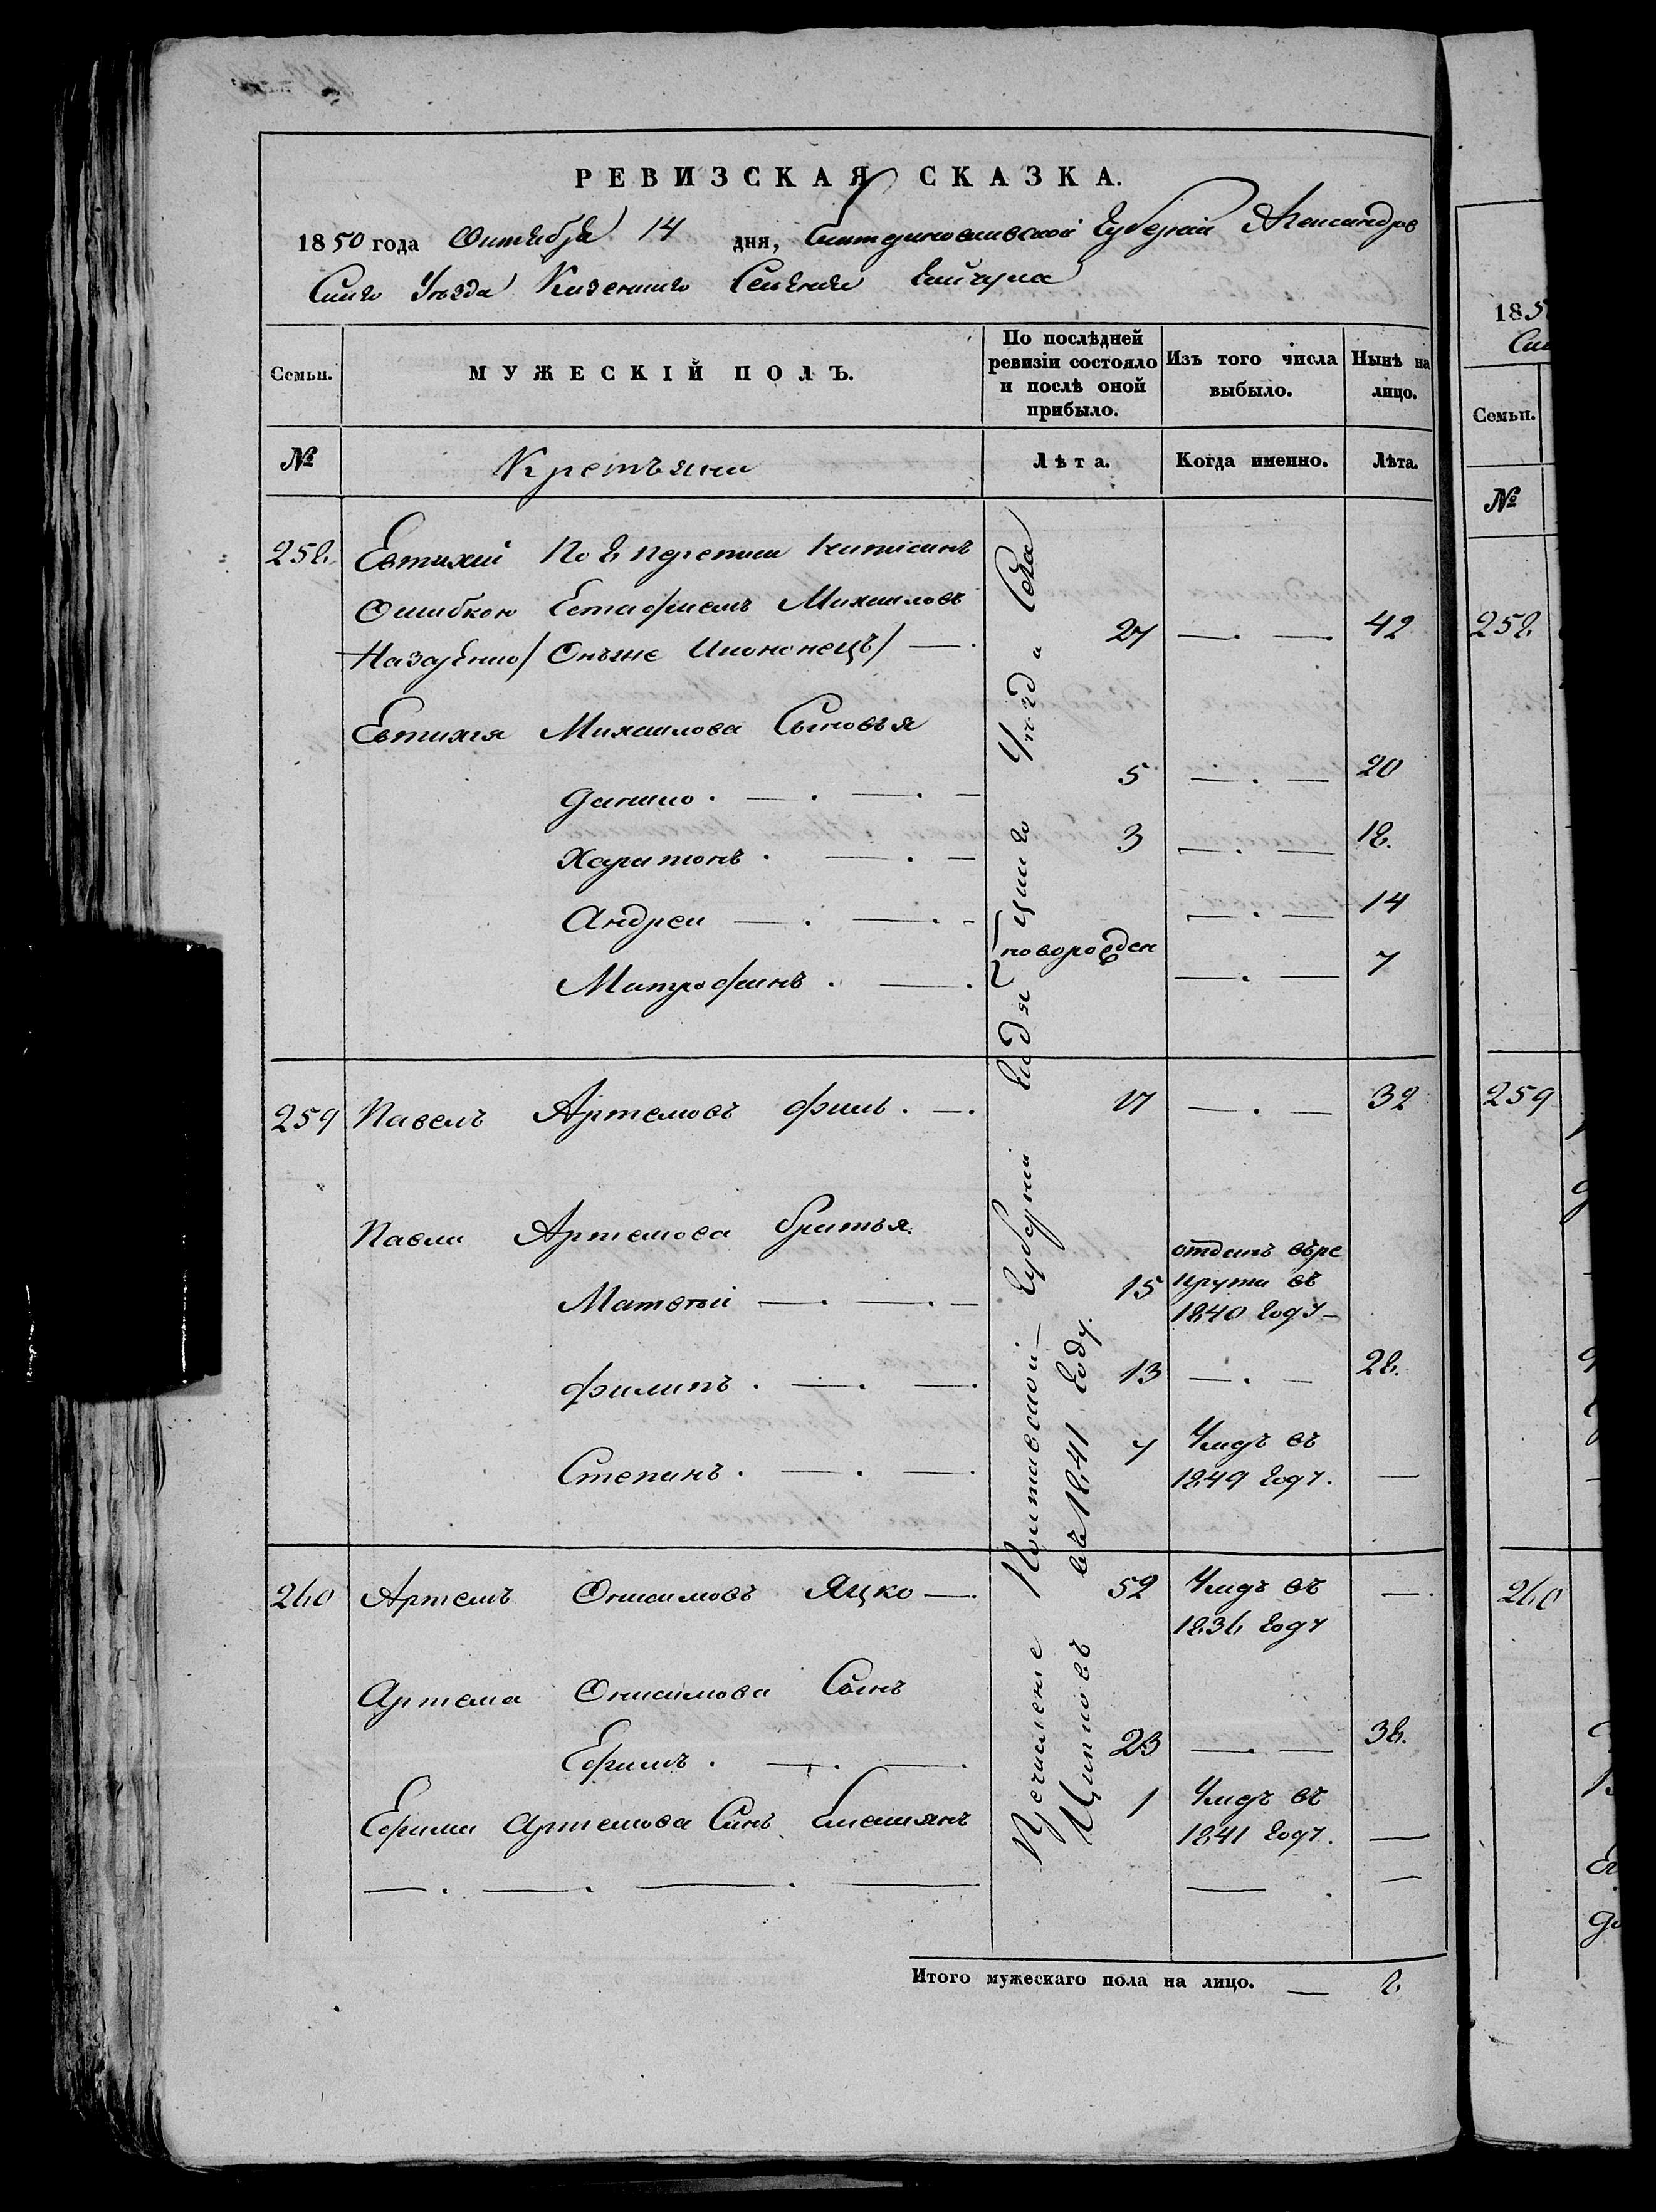 РЕВИЗСКАЯ СКАЗКА.
1850 года Октября 14 дня, Екатеринославской Губернии Александров
Скаго Уезда Казеннаго Селения
Семьи.
МУЖЕСКІЙ ПОЛЪ.
По послѣдней
ревизіи состояло
и послѣ оной
прибыло.
Изъ того числа
выбыло.
Нынѣ на
лицо.
№
Крестьяни
Лѣта.
Когда именно.
Лѣта.
258. Евтихий По 8 переписи написанъ
Ошибкою Естафиемъ Михаиловъ
Назаренко / Онъже /
27 42
Евтихия Михаилова Сыновья
Данило. 5 20
Харитонъ. 3 18.
Андреи новорожден 14
Митрофанъ. 7
259 Павелъ Артемовъ филь. 17 32
Павла Артемова братья.
Матвѣй 15 отданъ въре
круты въ
1840 году
филипъ. 13 28.
Степанъ. 7 Умеръ въ
1849 году.
260 Артемъ Онисимовъ Яцко 52 Умеръ въ
1836 году
Артема Онисимова Сынъ
Ефимъ. 23 38.
Ефима Артемова Сынъ Емелиянъ 1 Умеръ въ
1841 году.
Полтавской Губерніи Гадяцкаго Уезда Села
въ 1841 Году.
Итого мужескаго пола на лицо. 8.
185
Семьи.
№
258.
259
260